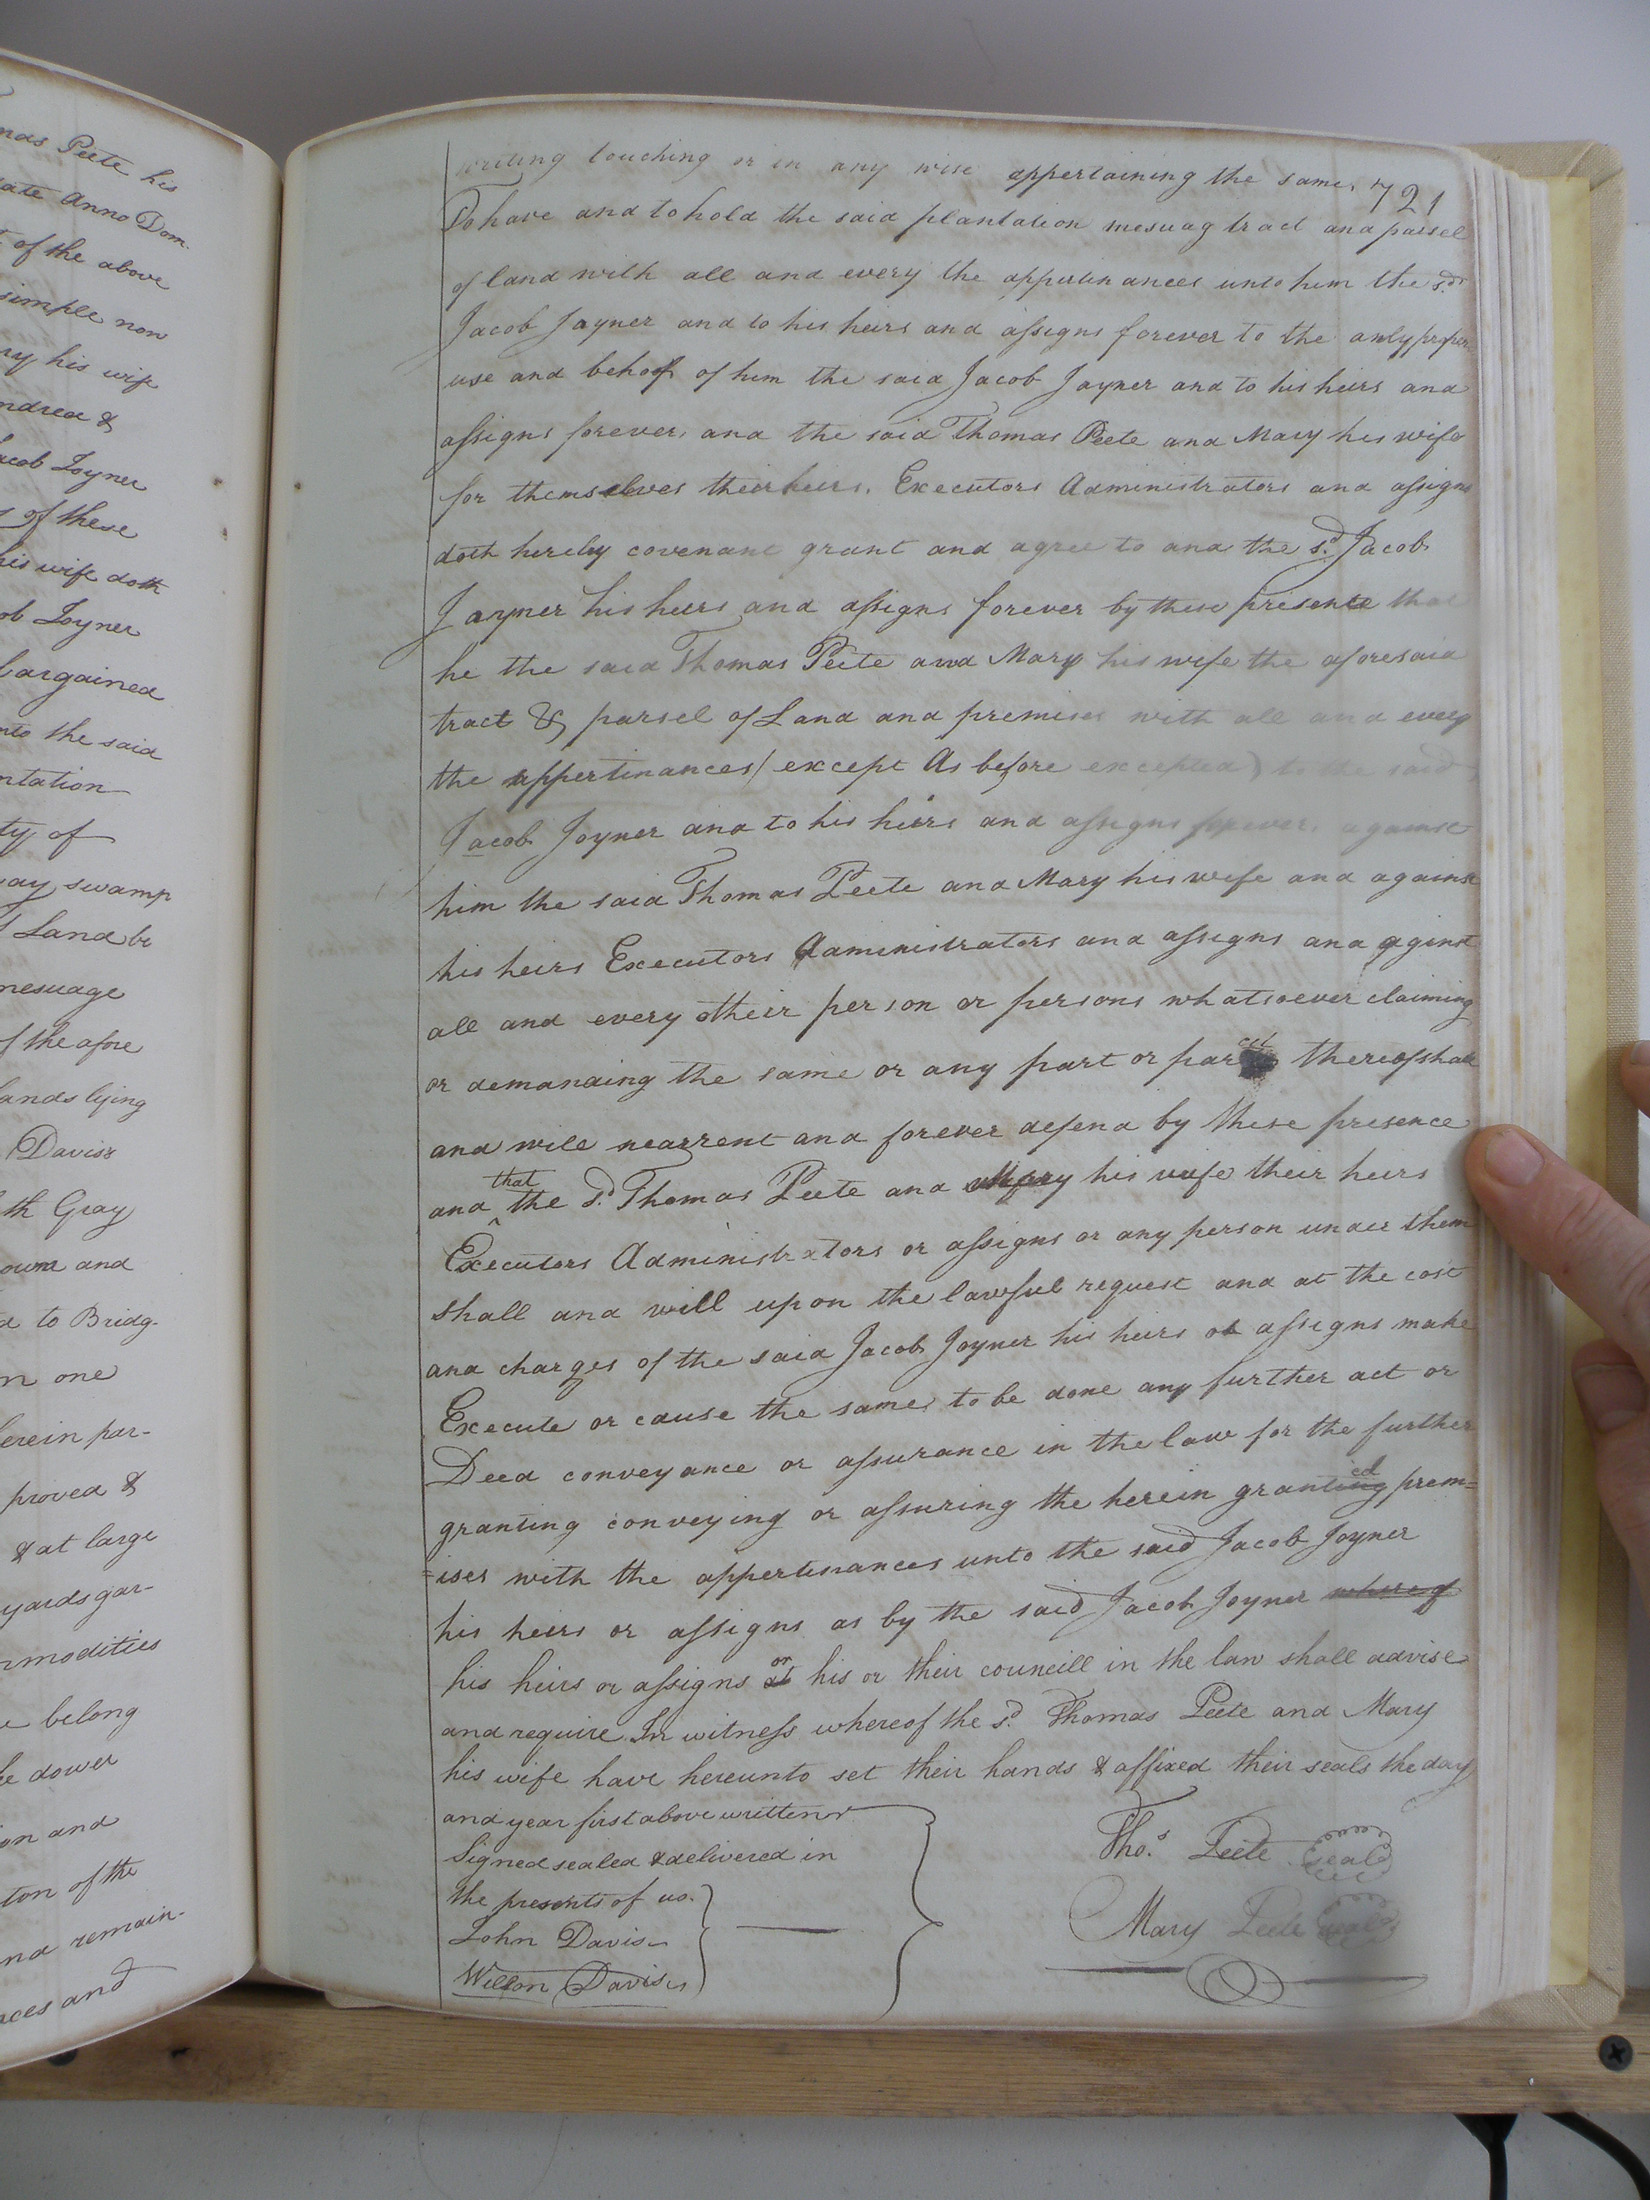 mas Peete his
date Anno Dom.
of the above
simple now
ry his wife
ndred &
Jacob Joyner
s of these
his wife doth
ob Joyner
bargained
nto the said
ntation
ty of
way swamp
Land be
mesuage
f the afore
lands lying
Daviss
th Gray
own and
d to Bridg-
n one
herein par-
proved &
& at large
yards gar-
mmodities
e belong
he dower
ion and
ton of the
and remain-
ces and
721
writing touching or in any wise appertaining the same,
To have and to hold the said plantation mesuag tract and parsel
of land with all and every the appurtinances unto him the sd.
Jacob Joyner and to his heirs and assigns forever to the only proper
use and behoof of him the said Jacob Joyner and to his heirs and
assigns forever, and the said Thomas Peete and Mary his wife
for themselves their heirs, Executors Administrators and assigns
doth hereby covenant grant and agree to and the sd. Jacob
Joyner his heirs and assigns forever by these presents that
he the said Thomas Peete and Mary his wife the aforesaid
tract & parsel of Land and premises with all and every
the appertinances (except As before excepted) to the said
Jacob Joyner and to his heirs and assigns forever, against
him the said Thomas Peete and Mary his wife and against
his heirs Executors Administrators and assigns and aginst
all and every otheir person or persons whatsoever claiming
or demanding the same or any part or parcel thereof shall
and will warrent and forever defend by these presence
and that the sd. Thomas Peete and Mary his wife their heirs
Executors Administrators or assigns or any person under them
shall and will upon the lawful request and at the cost
and charges of the said Jacob Joyner his heirs or assigns make
Execute or cause the same to be done any further act or
Deed conveyance or assurance in the law for the further
granting conveying or assuring the herein granted prem=
=ises with the appertinances unto the said Jacob Joyner
his heirs or assigns as by the said Jacob Joyner whereof
his heirs or assigns or his or their councill in the law shall advise
and require In witness whereof the sd. Thomas Peete and Mary
his wife have hereunto set their hands & affixed their seals the day
and year first above written
Signed sealed & delivered in
the presents of us.
John Davis
Willm Davis
Thos. Peete seal
Mary Peete seal